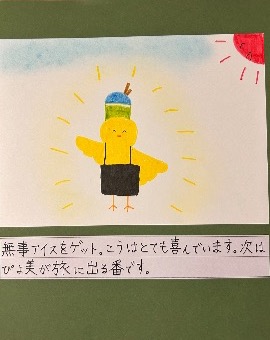 無事アイスをゲット。こうはとても喜んでいます。次は
ぴよ美が旅に出る番です。